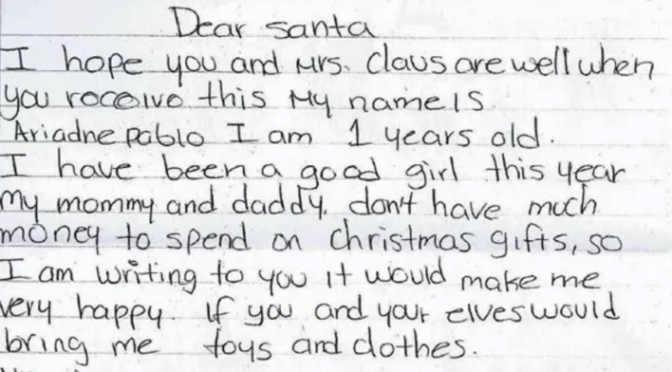 Dear Santa
I hope you and Mrs. Claus are well when
you roceive this My name Is
Ariadne pablo I am 1 years old.
I have been a good girl this year
my mommy and daddy. don't have much
money to spend on christmas gifts, so
I am writing to you it would make me
very happy if you and your elves would
bring me toys and clothes.